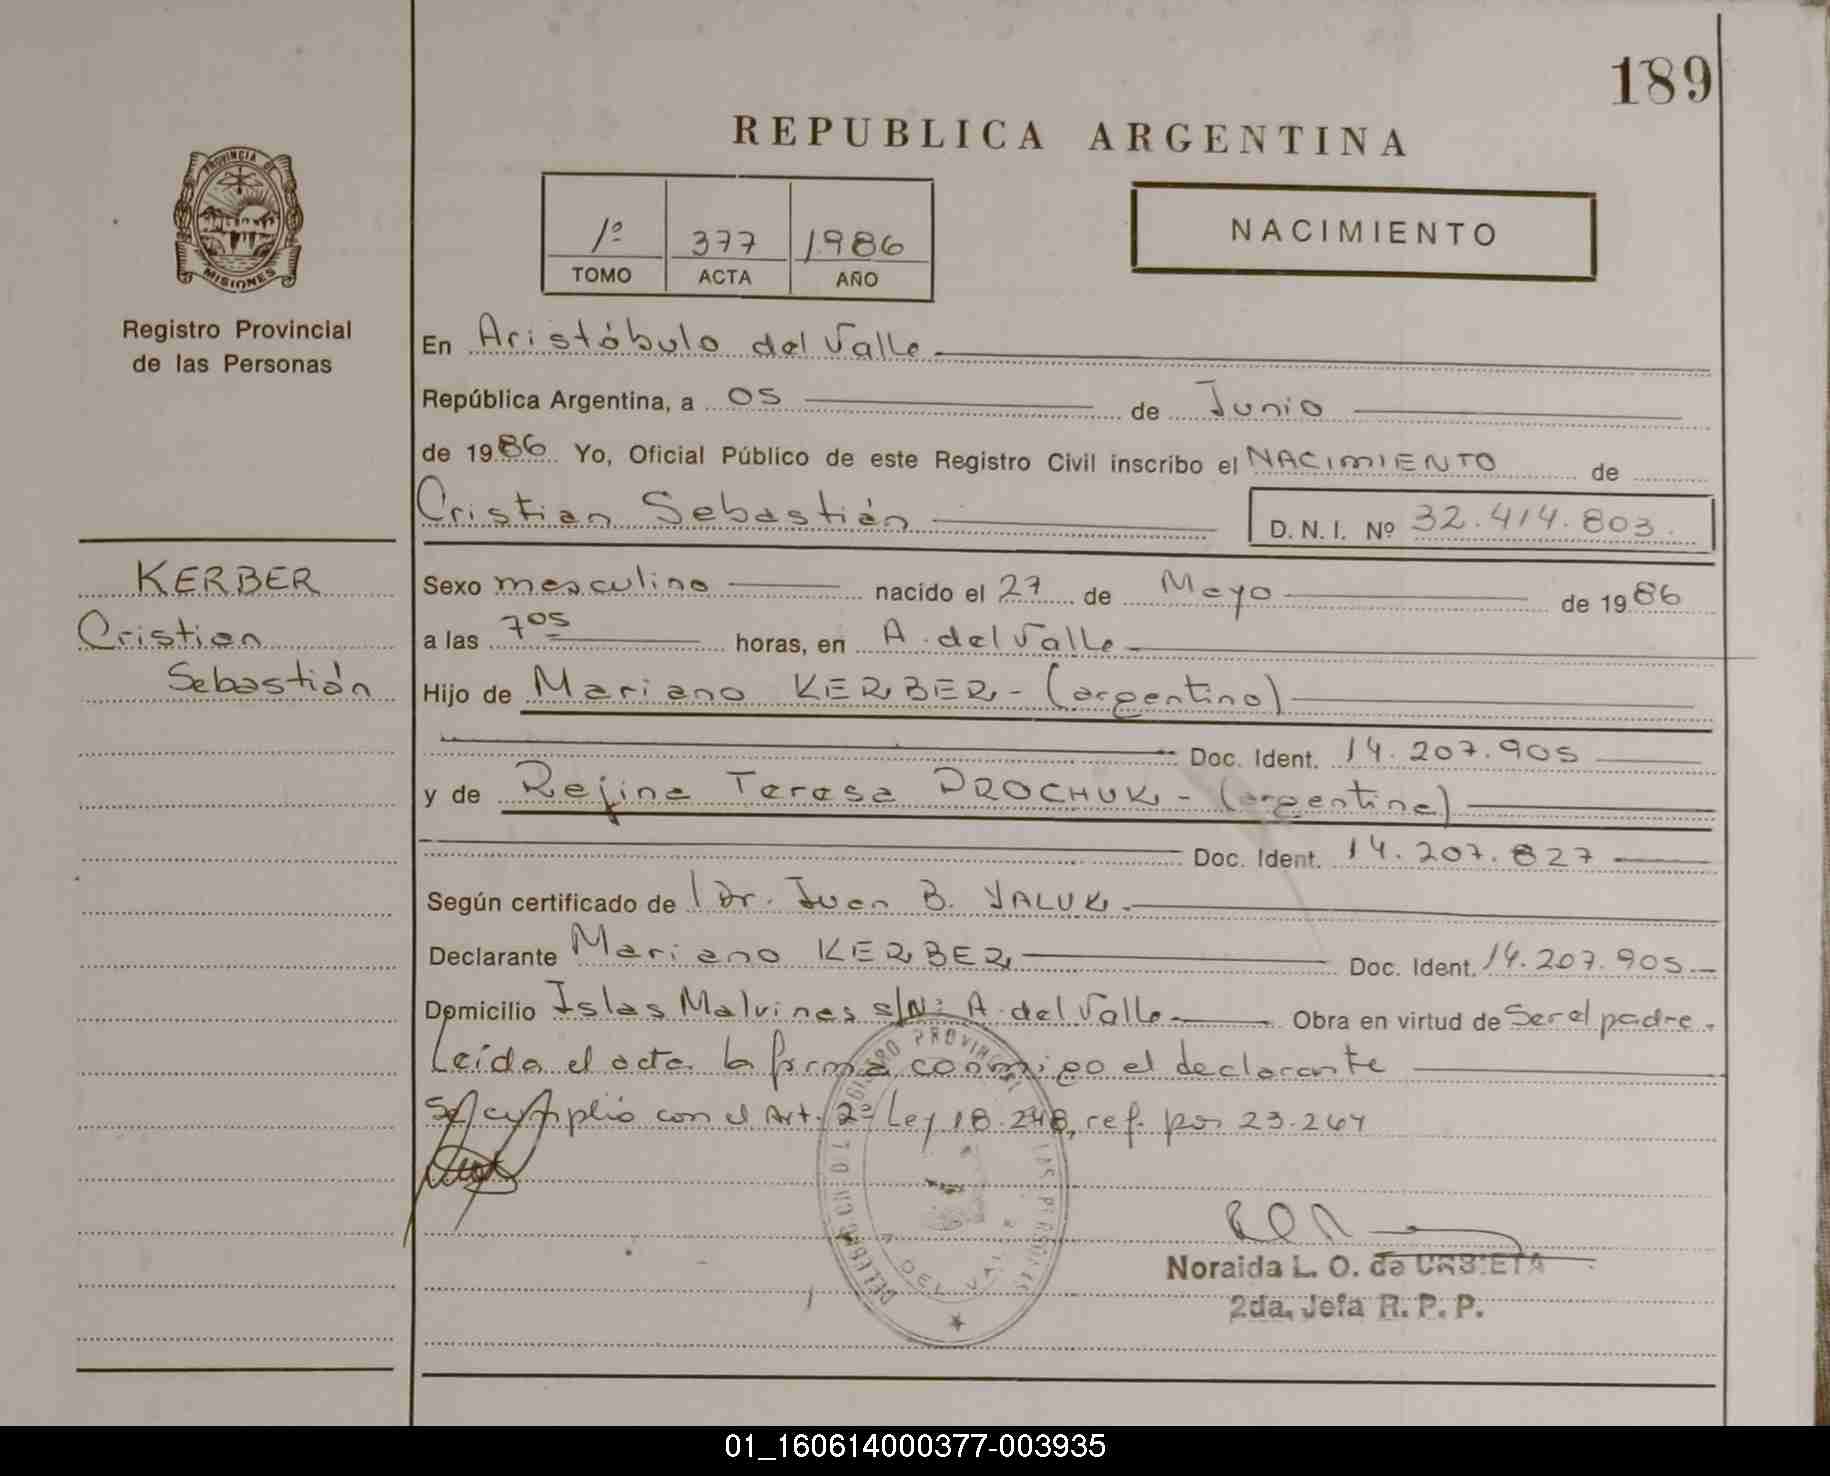 189
REPUBLICA ARGENTINA
PROVINCIA DE
MISIONES
Registro Provincial
de las Personas
1º 377 1986
TOMO ACTA AÑO
NACIMIENTO
En Aristóbulo del Valle
República Argentina, a 05 de Junio
de 1986 Yo, Oficial Público de este Registro Civil inscribo el NACIMIENTO de
Cristian Sebastián D. N. I. Nº 32.414.803.
KERBER
Cristian
Sebastián
Sexo masculino nacido el 27 de Mayo de 1986
a las 7 05 horas, en A. del Valle
Hijo de Mariano KERBER - (argentino)
Doc. Ident. 14.207.905
y de Rejina Teresa DROCHUK - (argentina)
Doc. Ident. 14.207.827
Según certificado de Dr. Juan B. YALUK.
Declarante Mariano KERBER Doc. Ident. 14.207.905
Domicilio Islas Malvinas s/Nº A. del Valle Obra en virtud de Ser el padre.
Leída el acta la firma conmigo el declarante
Se cumplió con el Art. 2º Ley 18.248, ref. por 23.264
A DEL VALLE
Noraida L. O. de URBIETA
2da. Jefa R. P. P.
01_160614000377-003935